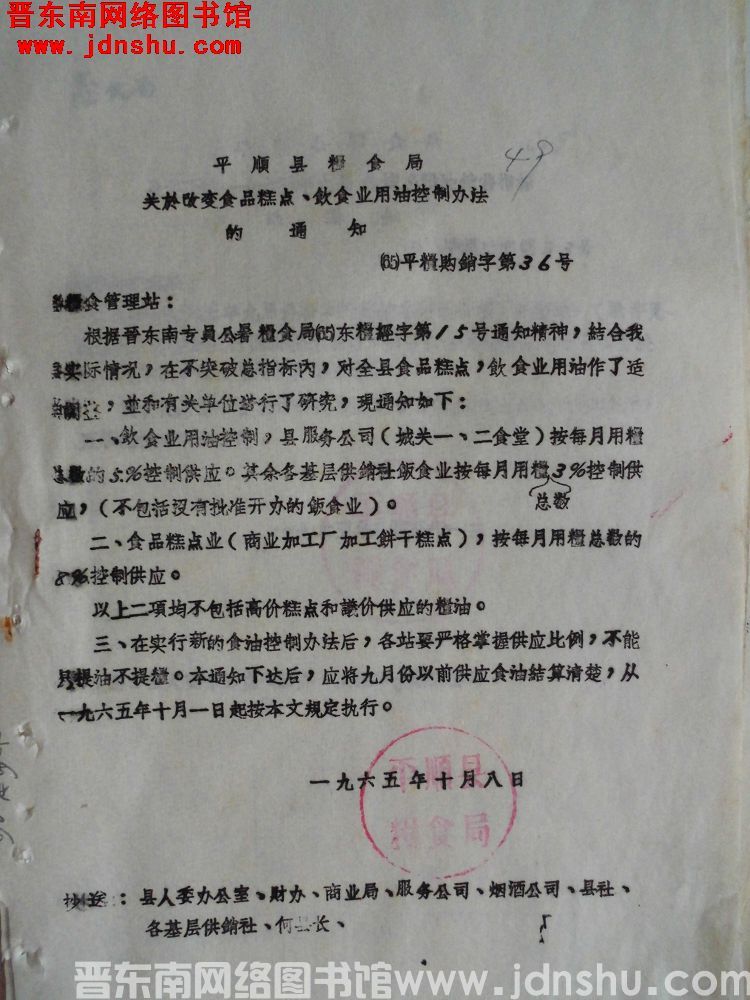 晋东南网络图书馆
www.jdnshu.com
49
平順县糧食局
关於改变食品糕点、飲食业用油控制办法
的通知
(65)平糧購銷字第36号
糧食管理站：
根据晋东南专員公署糧食局(65)东糧經字第15号通知精神，結合我
县实际情况，在不突破总指标內，对全县食品糕点，飲食业用油作了适
当調整，並和有关单位进行了研究，現通知如下：
一、飲食业用油控制，县服务公司（城关一、二食堂）按每月用糧
总数的5%控制供应。其余各基层供銷社飯食业按每月用糧3%控制供
总数
应，（不包括没有批准开办的飯食业）。
二、食品糕点业（商业加工厂加工餅干糕点），按每月用糧总数的
8%控制供应。
以上二項均不包括高价糕点和議价供应的糧油。
三、在实行新的食油控制办法后，各站要严格掌握供应比例，不能
只提油不提糧。本通知下达后，应将九月份以前供应食油結算清楚，从
一九六五年十月一日起按本文規定执行。
一九六五年十月八日
平順县
糧食局
抄送：县人委办公室、財办、商业局、服务公司、烟酒公司、县社、
各基层供銷社、何县长、
晋东南网络图书馆www.jdnshu.com